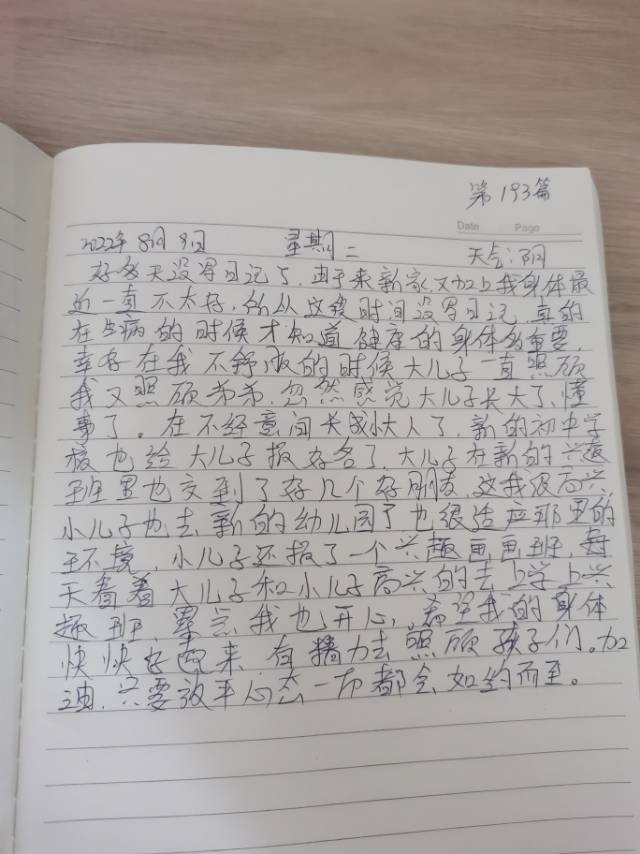 第193篇
Date Page
2022年8月9日 星期二 天气:阴
好多天没写日记了,由于来新家又加上我身体最
近一直不太好,所以这段时间没写日记,真的
在生病的时候才知道健康的身体多重要,
幸好在我不舒服的时候大儿子一直照顾
我又照顾弟弟,忽然感觉大儿子长大了,懂
事了。在不经意间长成小大人了,新的初中学
校也给大儿子报好名了,大儿子在新的兴趣
班里也交到了好几个好朋友,这我很高兴,
小儿子也去新的幼儿园了也很适应那里的
环境,小儿子还报了一个兴趣画画班,每
天看着大儿子和小儿子高兴的去上学上兴
趣班,累点我也开心,希望我的身体
快快好起来,有精力去照顾孩子们。加
油,只要放平心态一切都会如约而至。